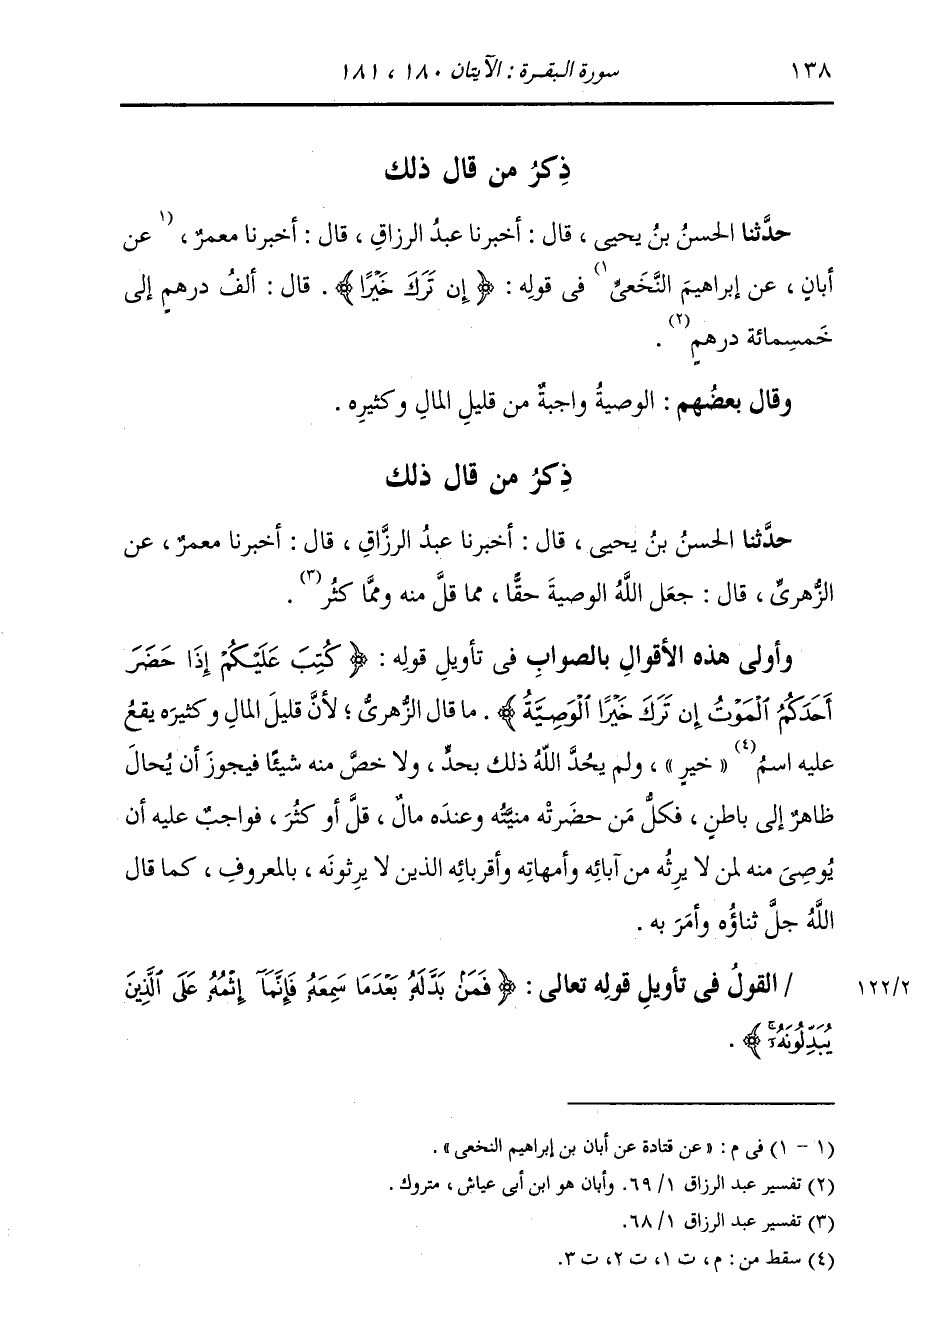 ١٣٨ سورة البقرة : الآيتان ١٨٠ ، ١٨١
ذِكرُ من قال ذلك
حدَّثنا الحسنُ بنُ يحيى ، قال : أخبرنا عبدُ الرزاقِ ، قال : أخبرنا معمرٌ ، (١ عن
أبانٍ ، عن إبراهيمَ النَّخَعىِّ ١) فى قولِه : ﴿ إِن تَرَكَ خَيْرًا ﴾ . قال : ألفُ درهمٍ إلى
خَمسِمائة درهمٍ (٢) .
وقال بعضُهم : الوصيةُ واجبةٌ من قليلِ المالِ وكثيرِه .
ذِكرُ من قال ذلك
حدَّثنا الحسنُ بنُ يحيى ، قال : أخبرنا عبدُ الرزَّاقِ ، قال : أخبرنا معمرٌ ، عن
الزُّهرىِّ ، قال : جعَل اللَّهُ الوصيةَ حقًّا ، مما قلَّ منه وممَّا كثُر (٣) .
وأولى هذه الأقوالِ بالصوابِ فى تأويلِ قولِه : ﴿ كُتِبَ عَلَيْكُمْ إِذَا حَضَرَ
أَحَدَكُمُ ٱلْمَوْتُ إِن تَرَكَ خَيْرًا ٱلْوَصِيَّةُ ﴾ . ما قال الزُّهرىُّ ؛ لأنَّ قليلَ المالِ وكثيرَه يقعُ
عليه اسمُ (٤) « خيرٍ » ، ولم يحُدَّ اللَّهُ ذلك بحدٍّ ، ولا خصَّ منه شيئًا فيجوزَ أن يُحالَ
ظاهرٌ إلى باطنٍ ، فكلُّ مَن حضرَتْه منيَّتُه وعندَه مالٌ ، قلَّ أو كثُرَ ، فواجبٌ عليه أن
يُوصِىَ منه لمن لا يرِثُه من آبائِه وأمهاتِه وأقربائِه الذين لا يرِثونَه ، بالمعروفِ ، كما قال
اللَّهُ جلَّ ثناؤُه وأمَرَ به .
/ القولُ فى تأويلِ قولِه تعالى : ﴿ فَمَنۢ بَدَّلَهُۥ بَعْدَمَا سَمِعَهُۥ فَإِنَّمَآ إِثْمُهُۥ عَلَى ٱلَّذِينَ ١٢٢/٢
يُبَدِّلُونَهُۥٓ ۚ ﴾ .
(١ - ١) فى م : « عن قتادة عن أبان بن إبراهيم النخعى » .
(٢) تفسير عبد الرزاق ١/ ٦٩. وأبان هو ابن أبى عياش ، متروك .
(٣) تفسير عبد الرزاق ١/ ٦٨.
(٤) سقط من : م، ت ١، ت ٢، ت ٣.